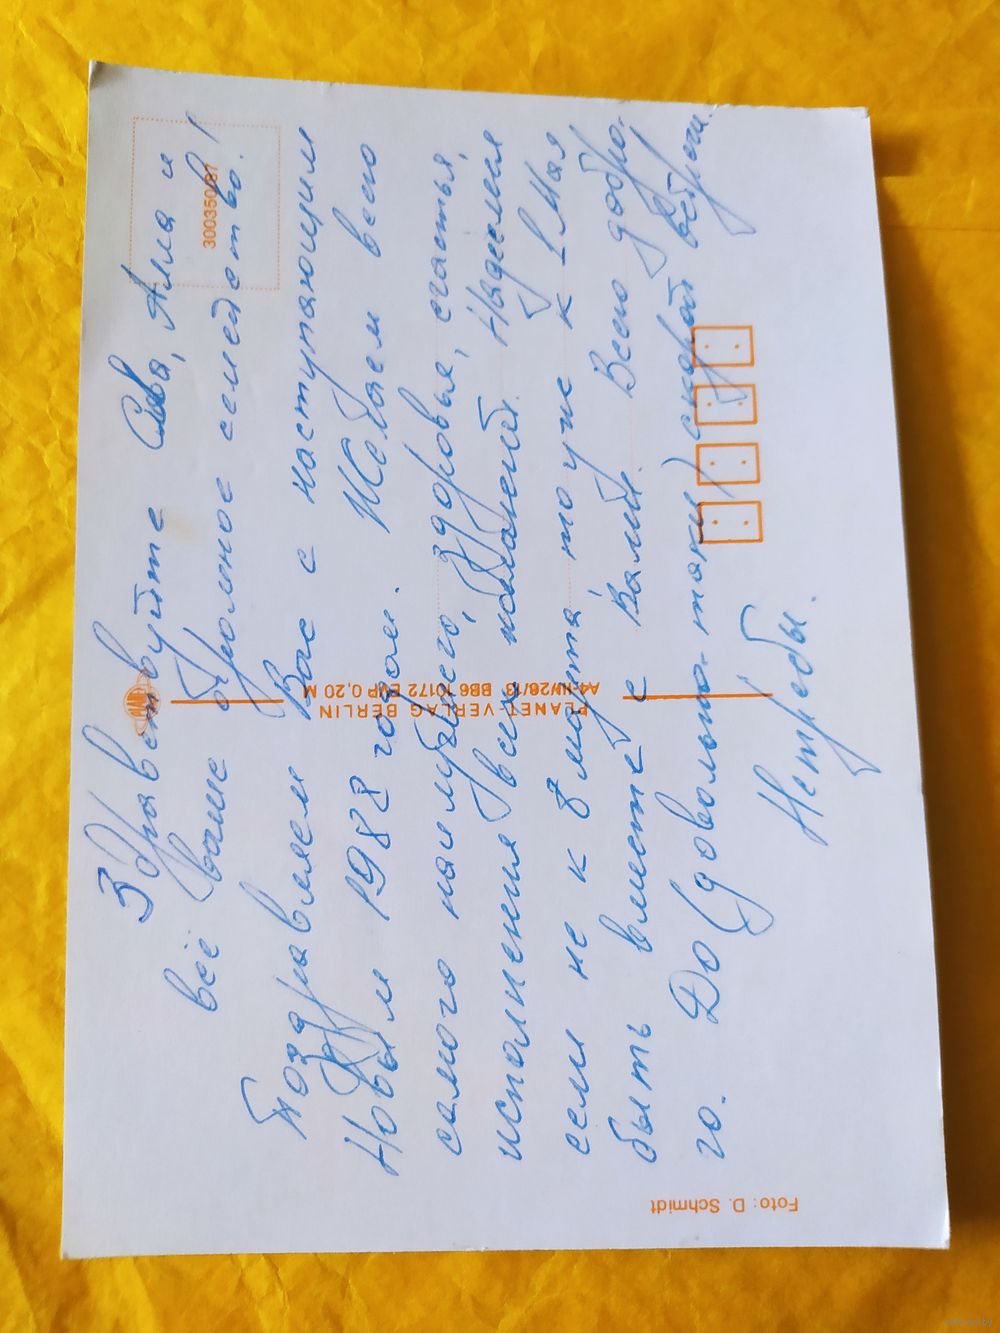 Здравствуйте Слава, Алла и
всё ваше огромное семейство!
Поздравляем Вас с наступающим
Новым 1988 годом. Желаем всего
самого наилучшего, здоровья, счастья,
исполнения всех желаний. Надеемся
если не к 8 марта, то уже к 1 Мая
быть вместе с Вами. Всего добро-
го. До (довольно-таки) скорой встречи.
Нетребы.
300350/87
PLANET-VERLAG BERLIN
A4-III/26/13 BB6 10172 EVP 0,20 M
Foto: D. Schmidt